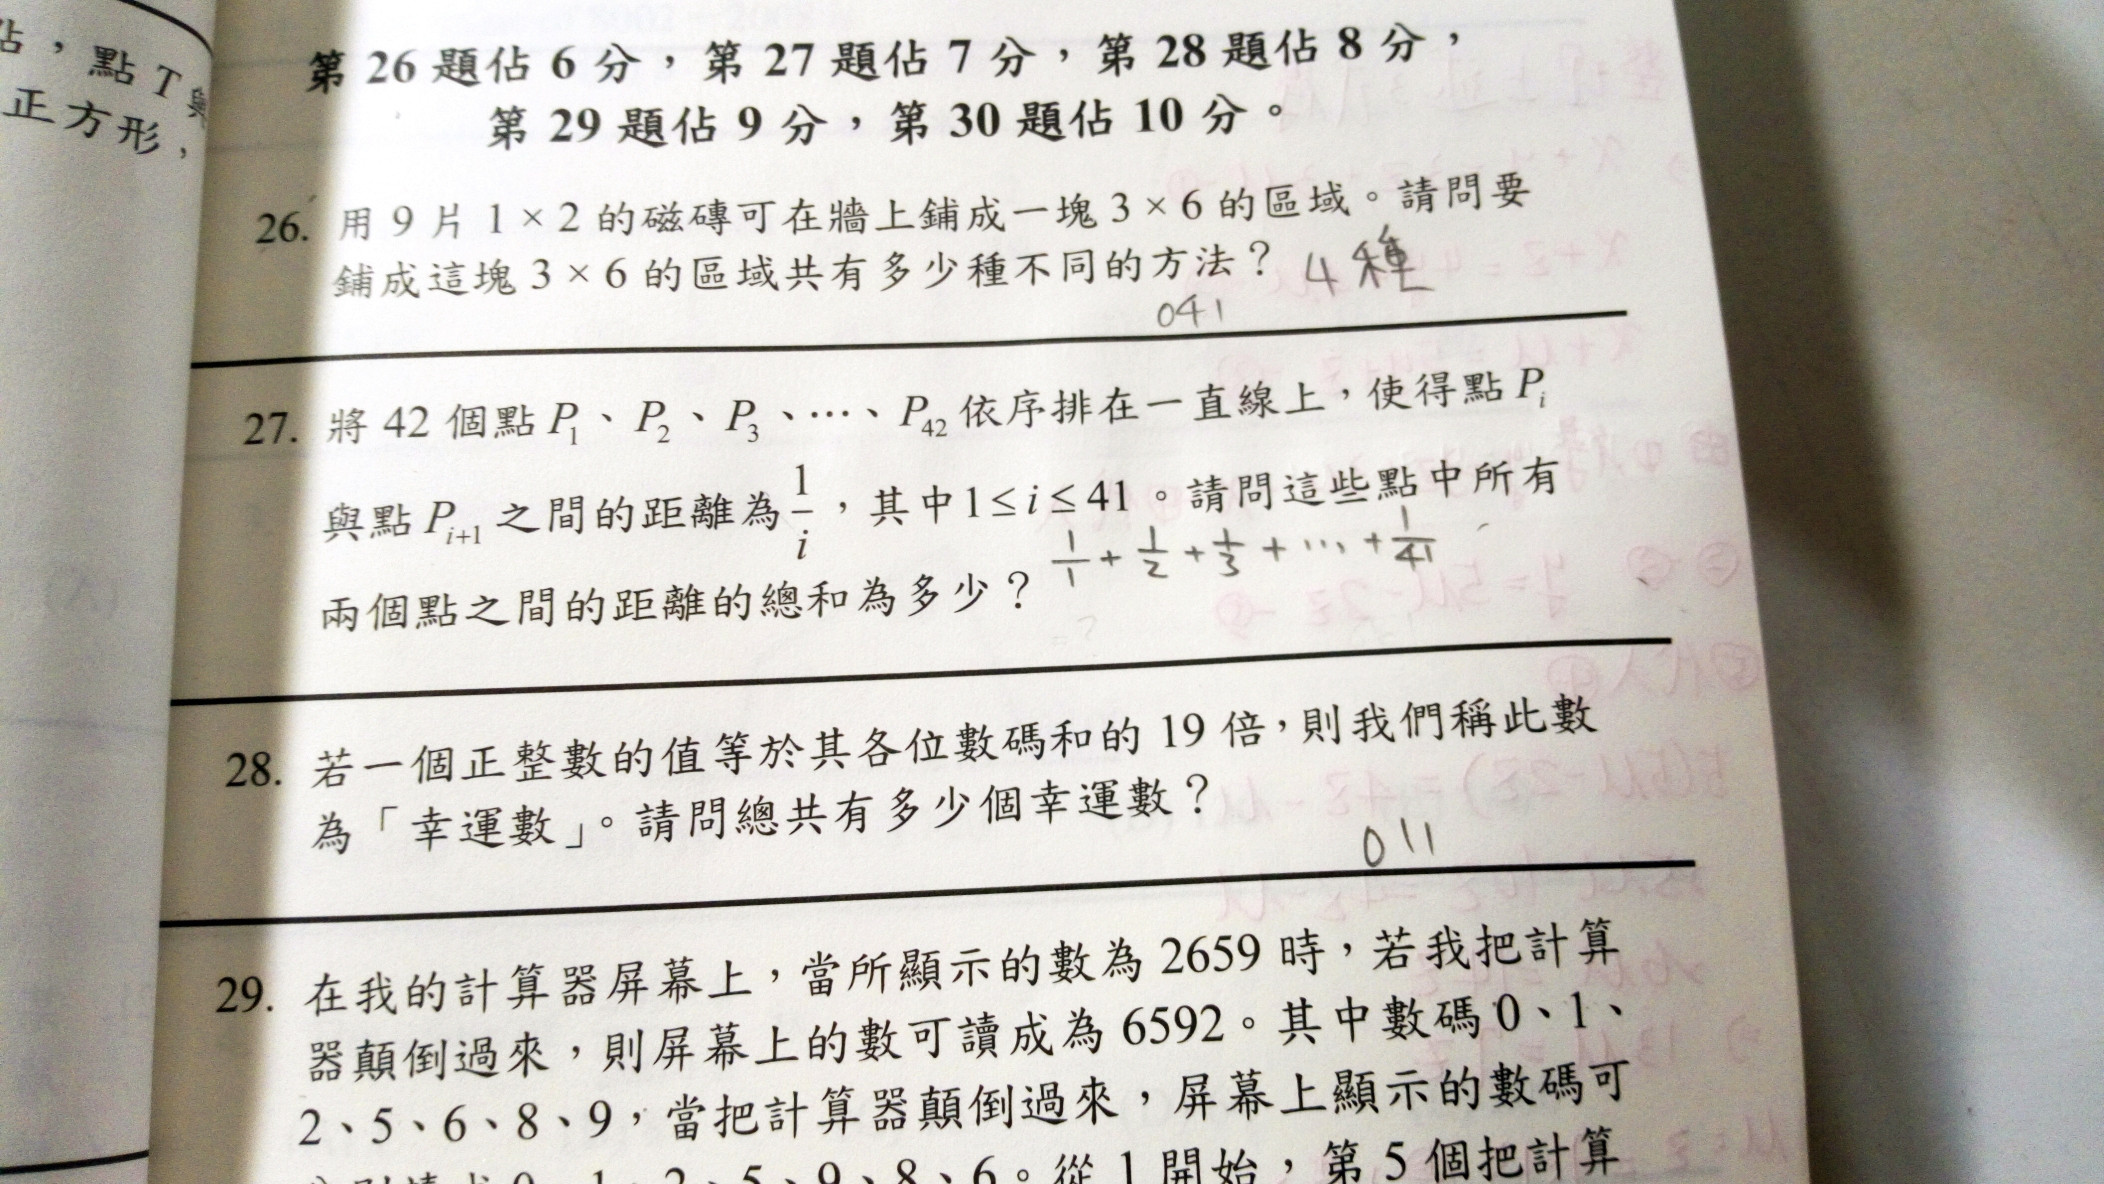 點，點 T 與
正方形，
第 26 題佔 6 分，第 27 題佔 7 分，第 28 題佔 8 分，
第 29 題佔 9 分，第 30 題佔 10 分。
26. 用 9 片 1 × 2 的磁磚可在牆上鋪成一塊 3 × 6 的區域。請問要
鋪成這塊 3 × 6 的區域共有多少種不同的方法？ 4種
041
27. 將 42 個點 P₁、P₂、P₃、⋯、P₄₂ 依序排在一直線上，使得點 Pᵢ
與點 Pᵢ₊₁ 之間的距離為 1/i ，其中 1 ≤ i ≤ 41。請問這些點中所有
1/1 + 1/2 + 1/3 + ⋯ + 1/41
兩個點之間的距離的總和為多少？
28. 若一個正整數的值等於其各位數碼和的 19 倍，則我們稱此數
為「幸運數」。請問總共有多少個幸運數？
011
29. 在我的計算器屏幕上，當所顯示的數為 2659 時，若我把計算
器顛倒過來，則屏幕上的數可讀成為 6592。其中數碼 0、1、
2、5、6、8、9，當把計算器顛倒過來，屏幕上顯示的數碼可
0、1、2、5、9、8、6。從 1 開始，第 5 個把計算